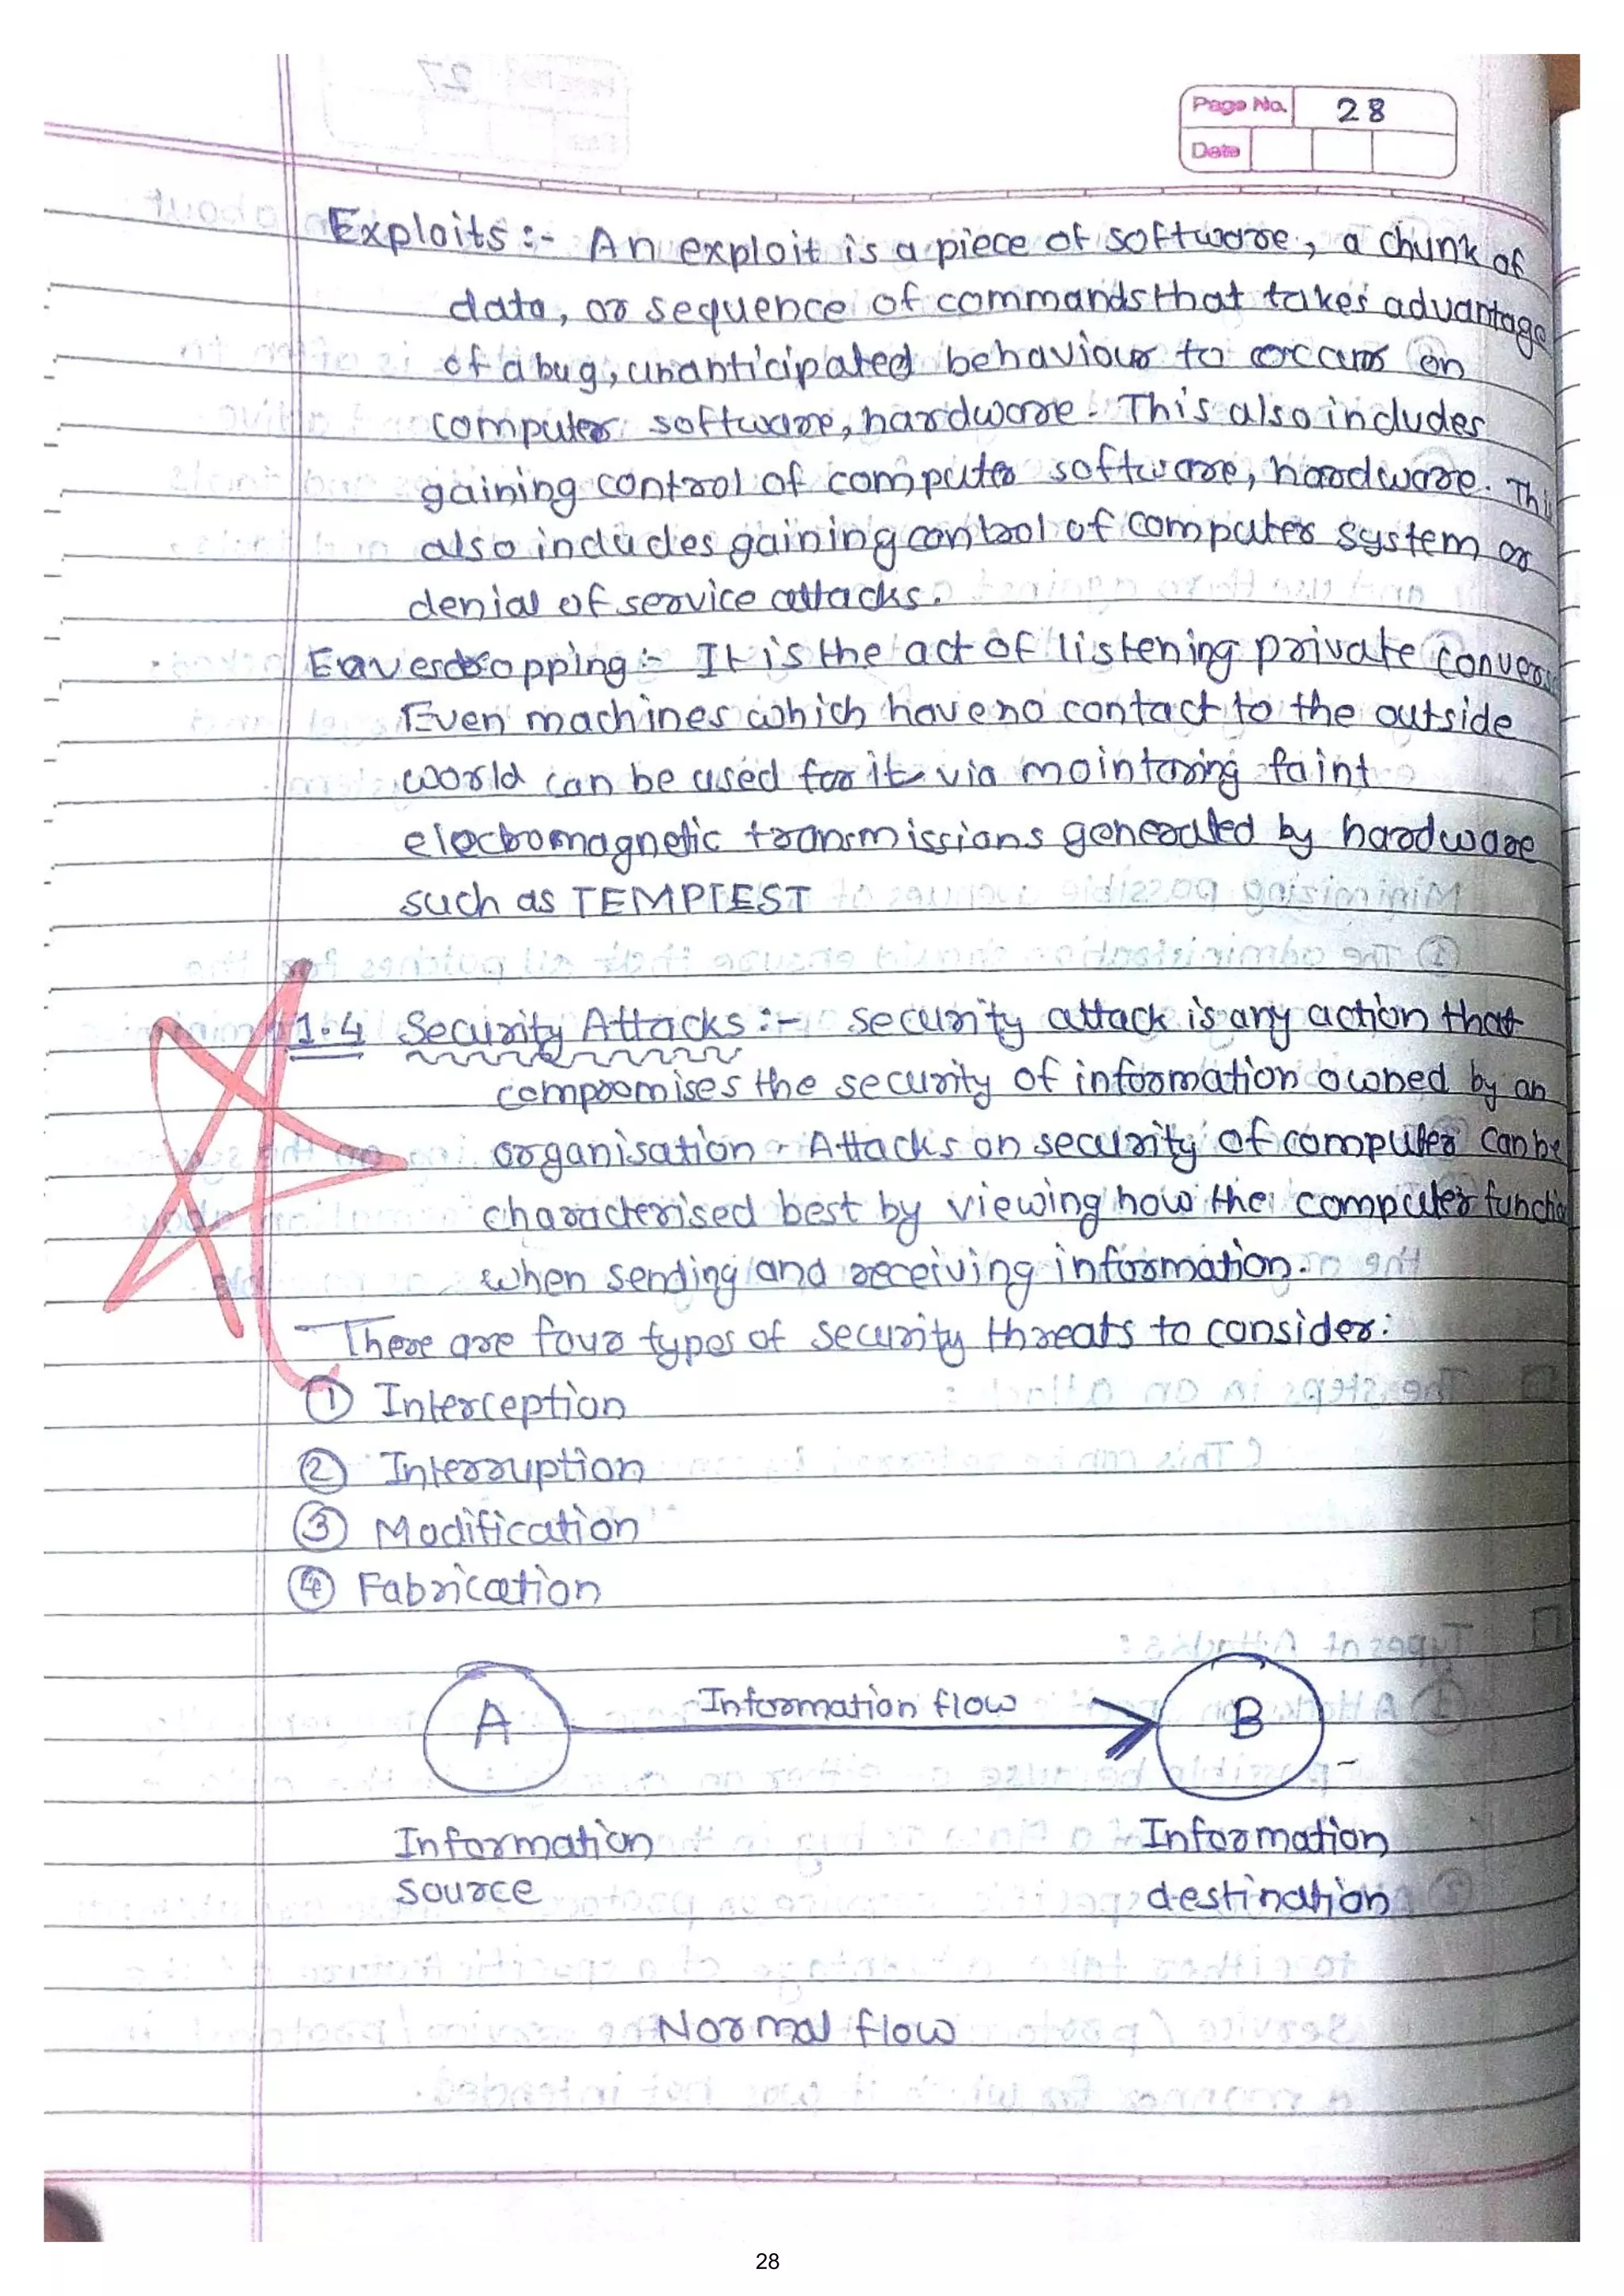 Page No. 28
Date
Exploits :- An exploit is a piece of software, a chunk of
data, or sequence of commands that takes advantage
of a bug, unanticipated behaviour to occurs on
computer software, hardware. This also includes
gaining control of computer software, hardware. This
also includes gaining control of computer system or
denial of service attacks.
Eavesdropping :- It is the act of listening private convers
Even machines which have no contact to the outside
world can be used for it via mointoring faint
elecbromagnetic transmissions generated by hardware
such as TEMPTEST
1.4 Security Attacks :- security attack is any action that
compromises the security of information owned by an
organisation. Attacks on security of computer can be
characterised best by viewing how the computer functio
when sending and receiving information.
There are four types of security threats to consider:
① Interception
② Interruption
③ Modification
④ Fabrication
A Information flow B
Information Information
source destination
Normal flow
28